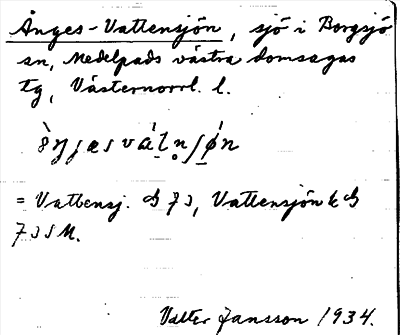 Ånges-Vattensjön, sjö i Borgsjö
sn, Medelpads västra domsagas
tg, Västernorrl. l.
= Vattensj. G 73, Vattensjön k G
73 S M.
Valter Jansson 1934.